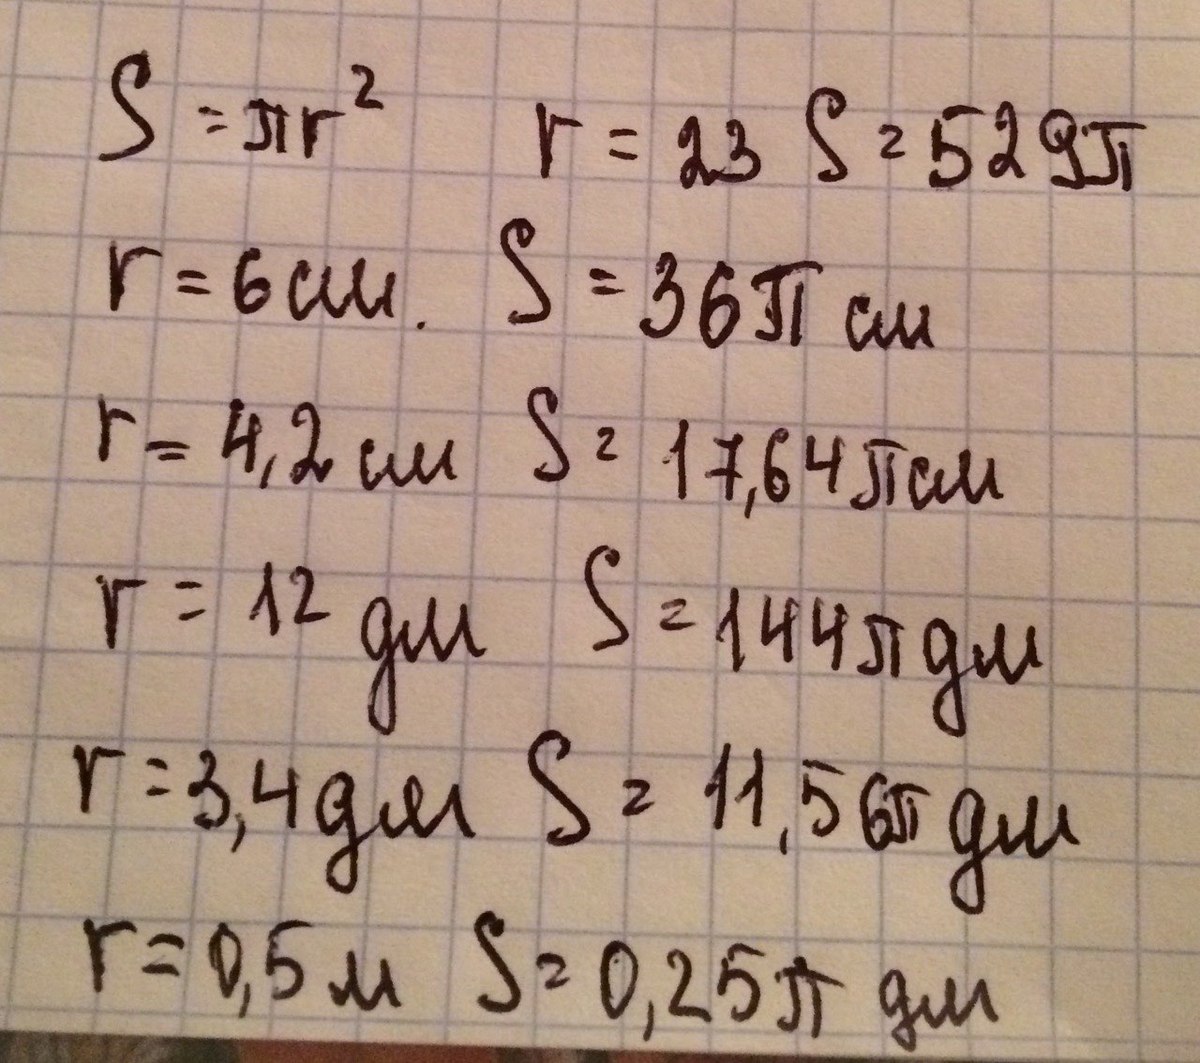 S = πr² r = 23 S = 529π
r = 6 см. S = 36π см
r = 4,2 см S = 17,64π см
r = 12 дм S = 144π дм
r = 3,4 дм S = 11,56π дм
r = 0,5 м S = 0,25π дм